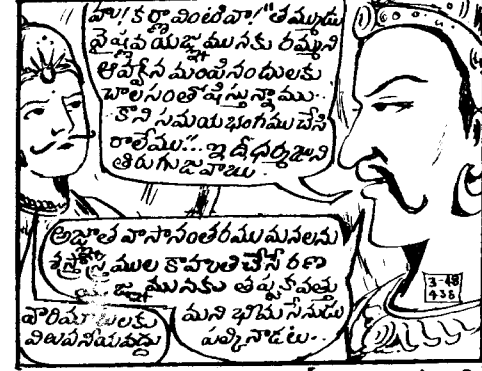 హా! కర్ణా వింటివా! "తమ్ముడు
వైష్ణవ యజ్ఞమునకు రమ్మని
ఆహ్వాన మంపినందులకు
చాల సంతోషిస్తున్నాము..
కాని సమయభంగము చేసి
రాలేము".. ఇదీ ధర్మజుని
తిరుగు జవాబు.
అజ్ఞాత వాసానంతరము మనలను
శస్త్రాస్త్రముల కాహుతిచేసే రణ
యజ్ఞమునకు తప్పక వత్తు
మని భీమసేనుడు
పల్కినాడట...
వారిమాటలకు
విలువనీయవద్దు
3-48
438